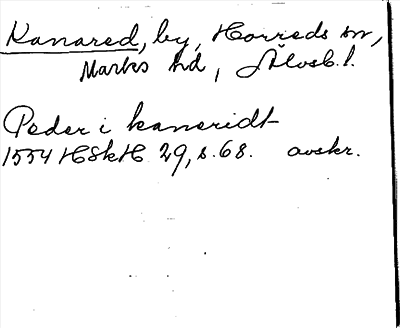 Kanared, by, Horreds sn,
Marks hd, Älvsb. l.
Peder i kaneridt
1554 HSkH 29, s. 68. avskr.